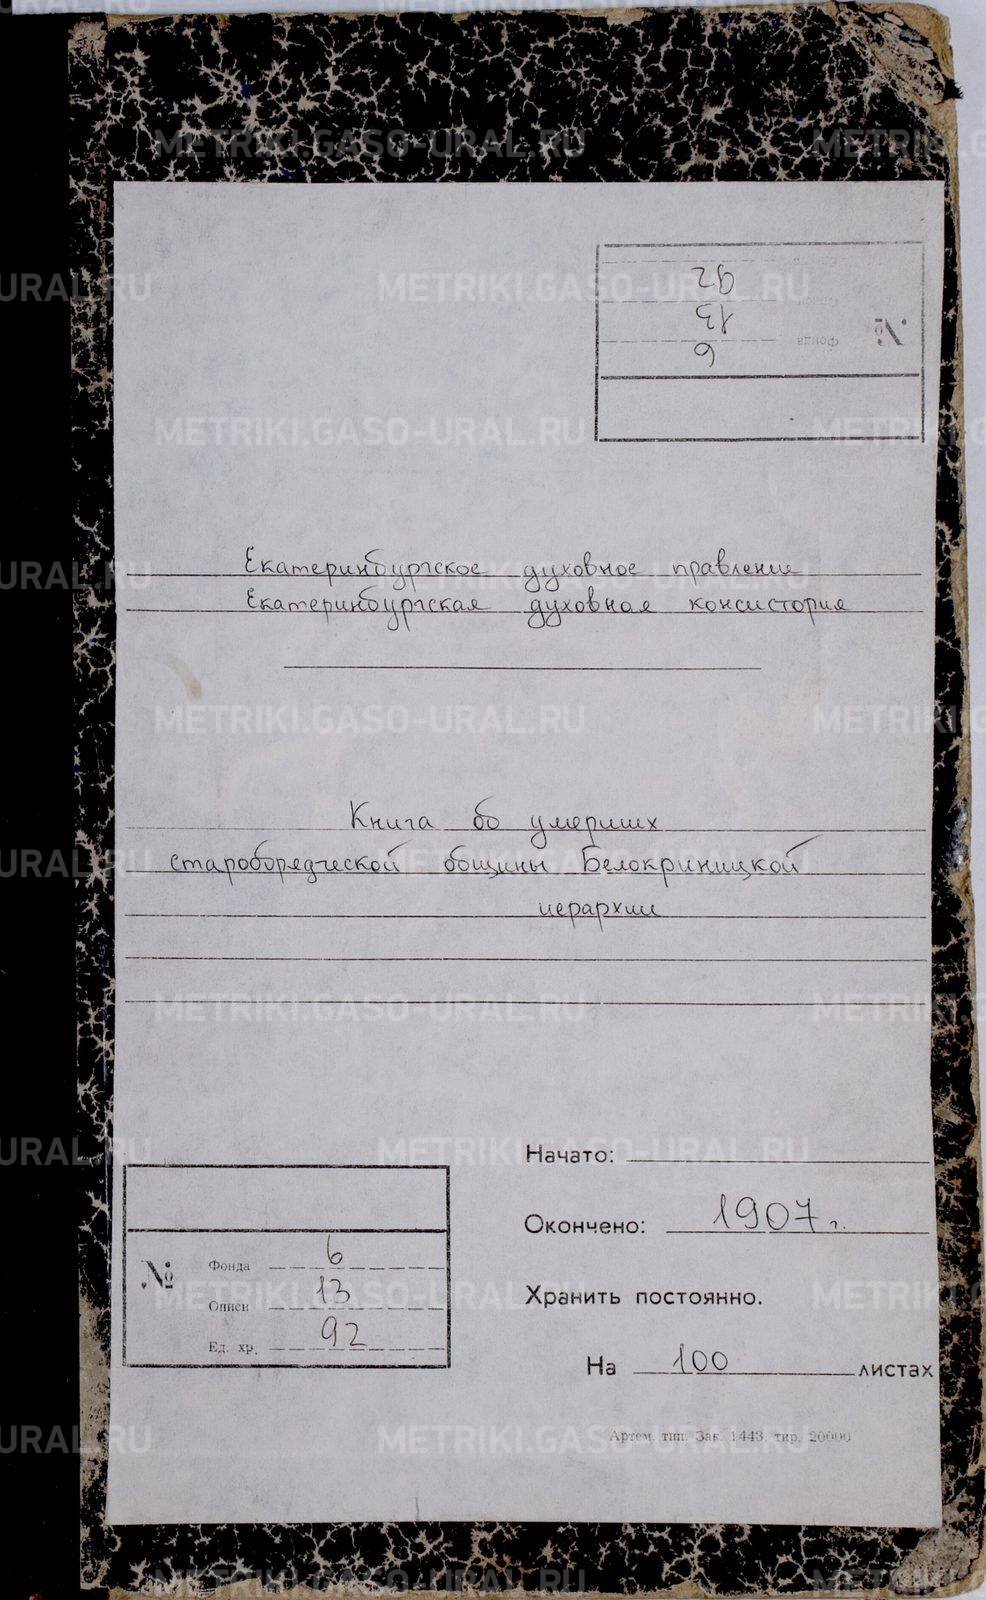 METRIKI.GASO-URAL.RU
92
13
6
Фонда
№
Екатеринбургское духовное правление
Екатеринбургская духовная консистория
Книга об умерших
старообрядческой общины Белокриницкой
иерархии
Начато:
Окончено: 1907 г.
Хранить постоянно.
На 100 листах
№
Фонда 6
Описи 13
Ед. хр. 92
Артем. тип. Зак. 1443. тир. 20000